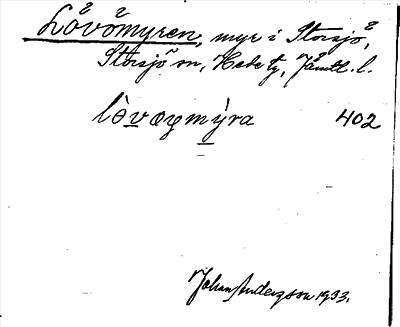 Lövömyren, myr i Storsjö,
Storsjö sn, Hede tg, Jämtl. l.
402
Johan Anderson 1933.